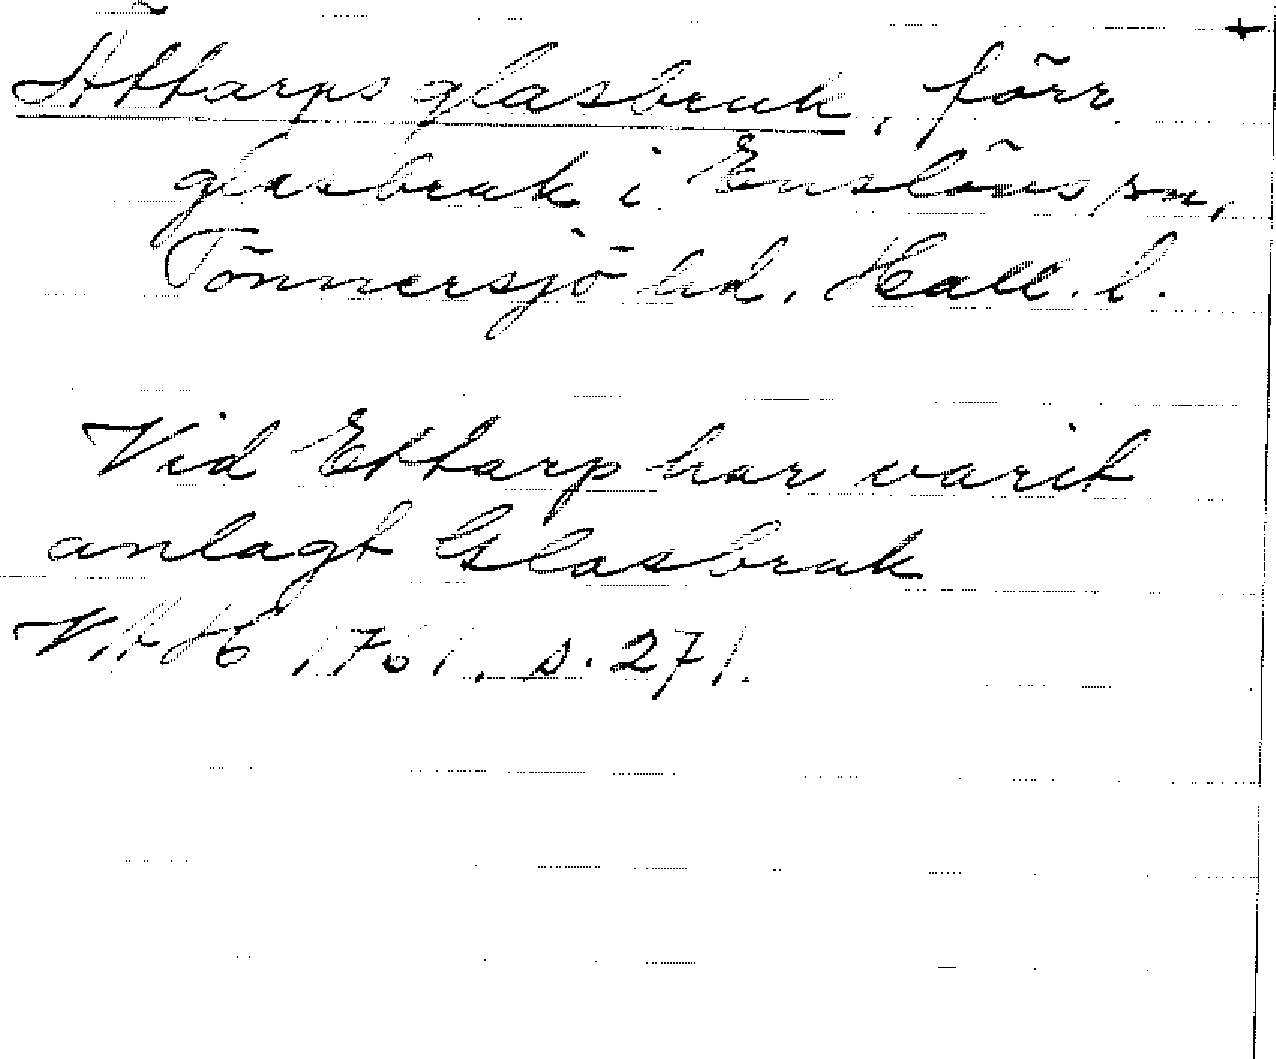 Ättarps glasbruk, förr
glasbruk i Enslövs sn,
Tönnersjö hd. Hall. l.
Vid Ettarp har varit
anlagt Glasbruk
1761. s. 271.